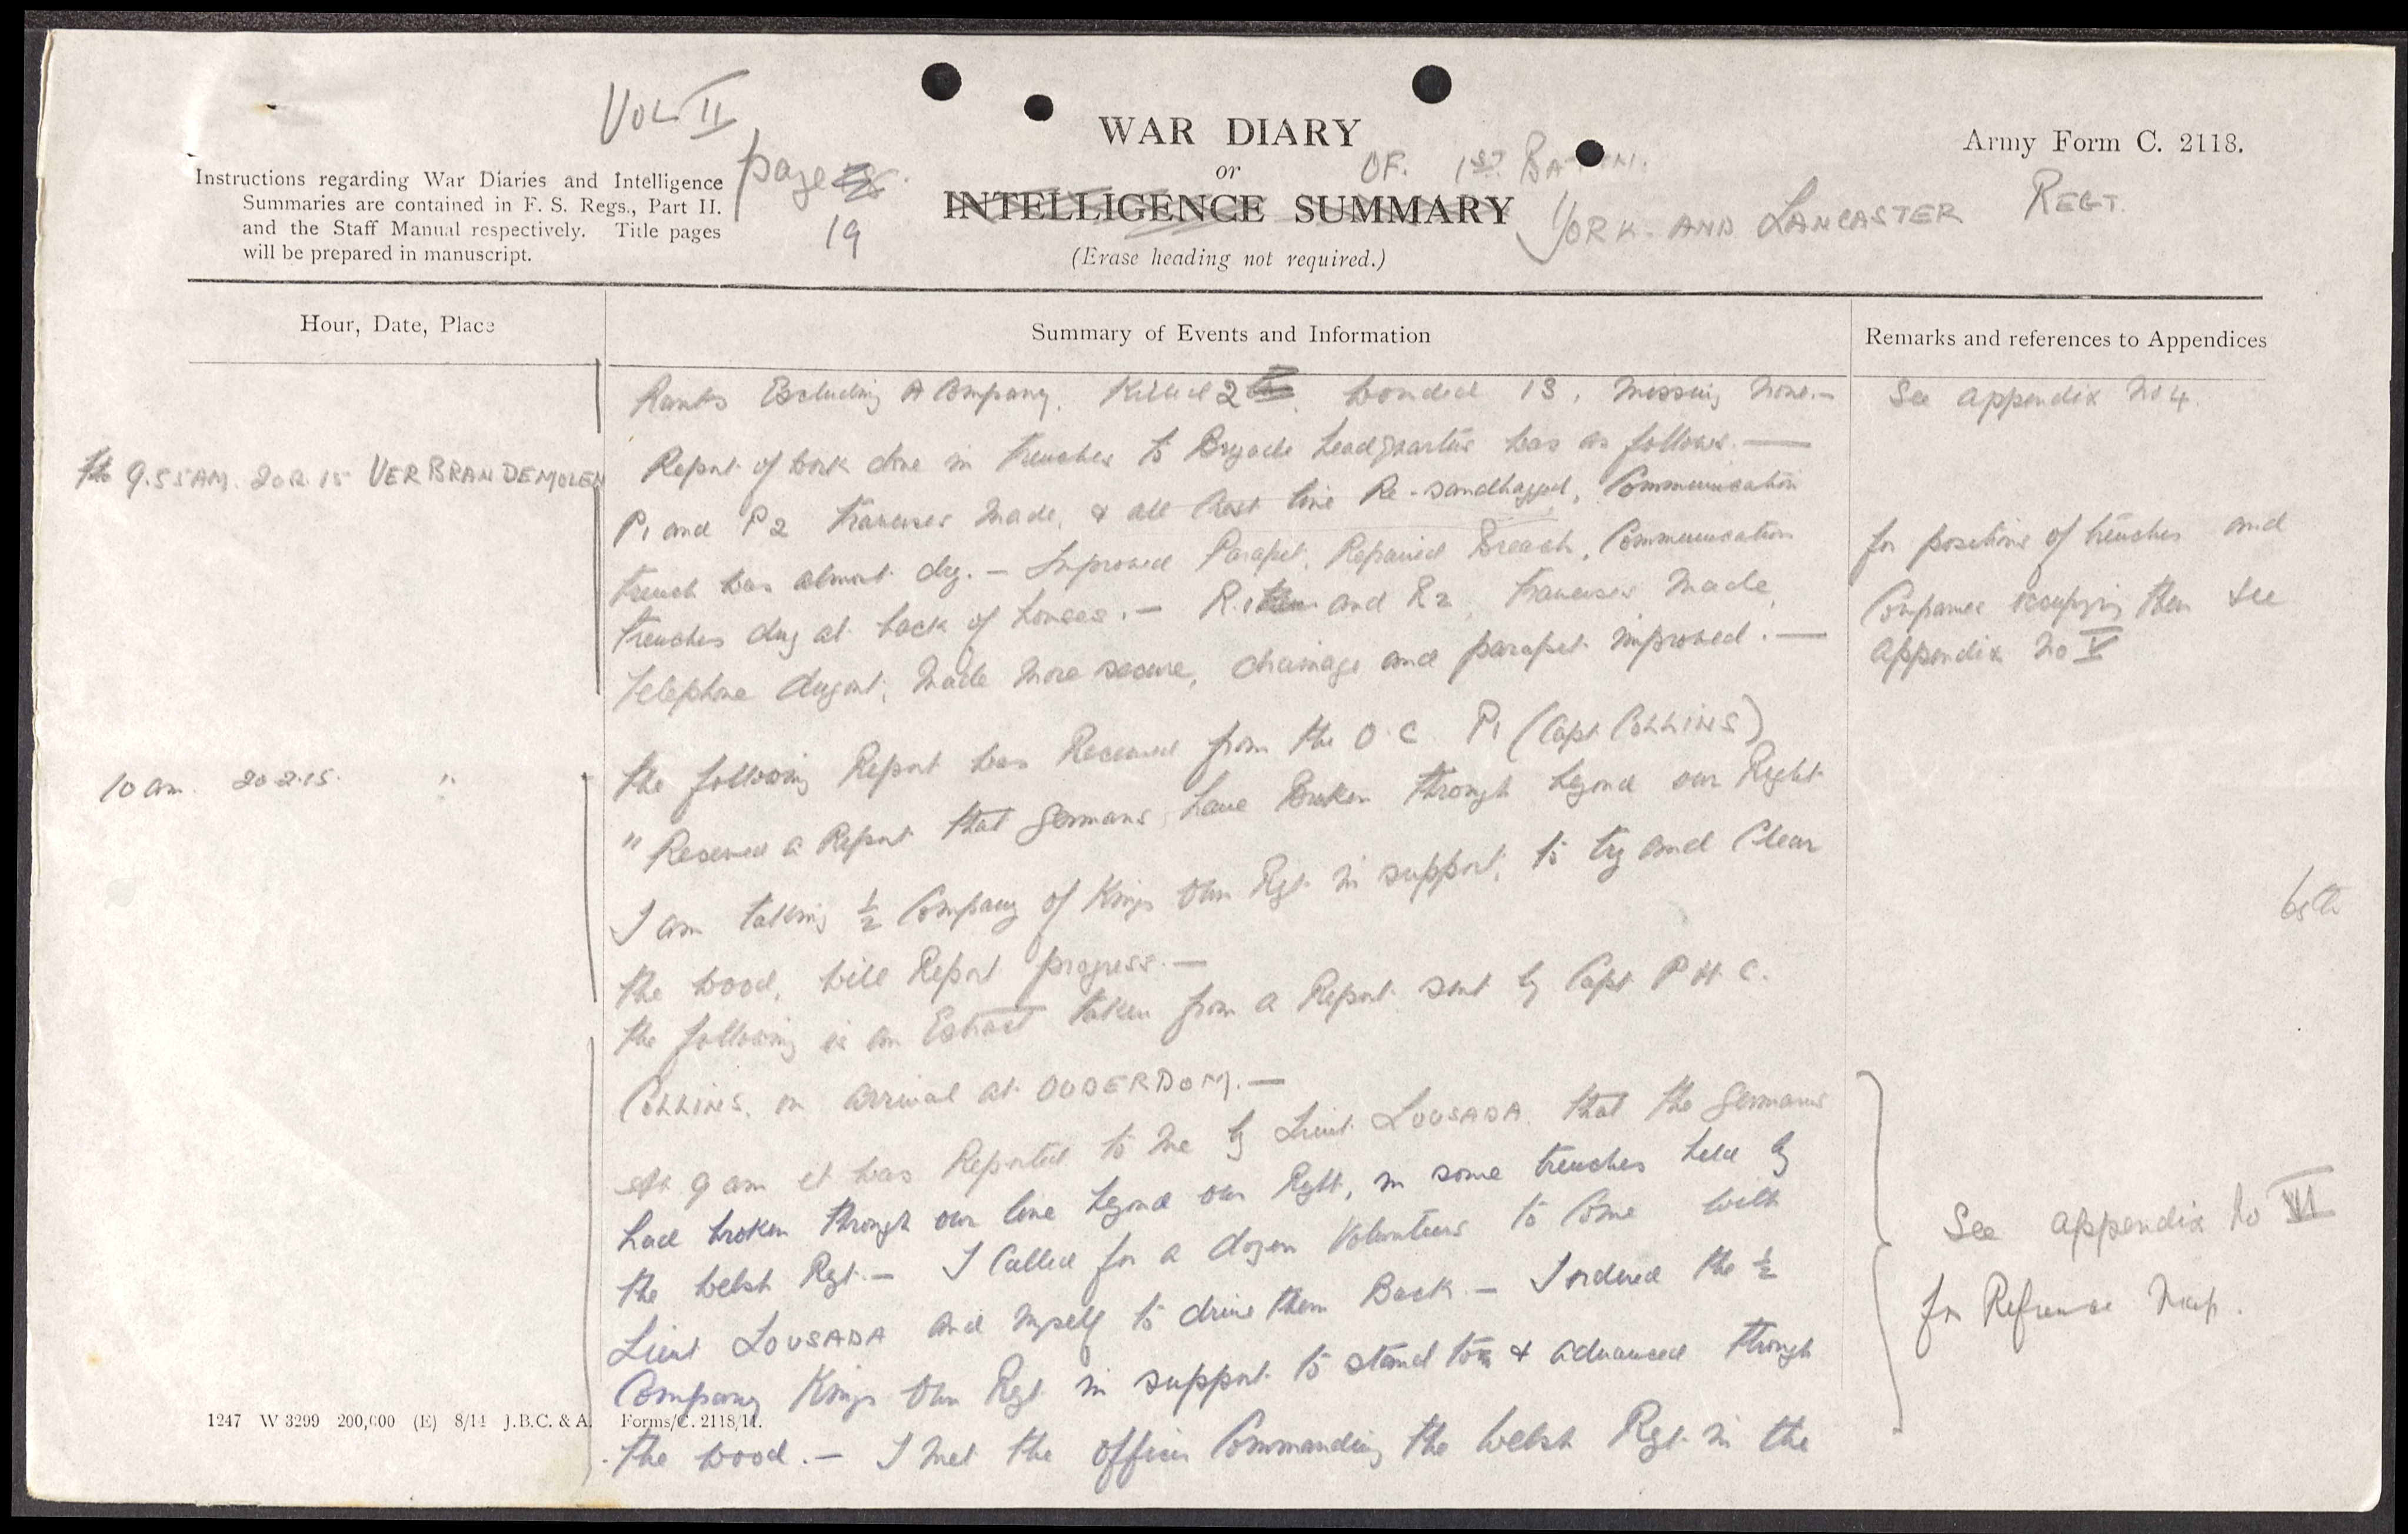 VOL II
page 19
WAR DIARY
or
INTELLIGENCE SUMMARY
(Erase heading not required.)
OF. 1ST. BATTN.
YORK. AND LANCASTER REGT.
Army Form C. 2118.
Instructions regarding War Diaries and Intelligence
Summaries are contained in F. S. Regs., Part II.
and the Staff Manual respectively. Title pages
will be prepared in manuscript.
Hour, Date, Place
Summary of Events and Information
Remarks and references to Appendices
Ranks Excluding A Company. Killed 2 Wonded 13, Missing None.—
See appendix No 4.
9.55AM. 20.2.15 VERBRANDEMOLEN
Report of work done in trenches to Brigade Headquarters was as follows.—
P1 and P2 traverses made, & all line Re-sandbagged, Communication
trench was almost dry.— Improved Parapet. Repaired Breach, Communication
trenches dug at back of houses.— R.1 and R2, traverses made,
telephone dugout, made more secure, drainage and parapet improved.—
for positions of trenches and
Companies occupying them see
appendix No V
10 am. 20.2.15. "
the following Report was Received from the O.C P1 (Capt COLLINS)
" Received a Report that Germans have Broken through beyond our Right
I am taking ½ Company of Kings Own Rgt. in support, to try and Clear
the wood, will Report progress.—
the following is an Extract taken from a Report sent by Capt P H C.
COLLINS. on arrival at OUDERDOM.—
At 9 am it was Reported to me by Lieut LOUSADA. that the Germans
had broken through our line beyond our Right, in some trenches held by
the Welsh Rgt.— I Called for a dozen Volunteers to Come with
Lieut LOUSADA and myself to drive them Back.— I ordered the ½
Company Kings Own Rgt. in support to stand to & advanced through
the wood.— I met the officer Commanding the Welsh Rgt. in the
See appendix No VI
for Refrence Map.
1247 W 3299 200,000 (E) 8/14 J.B.C. & A. Forms/C. 2118/11.